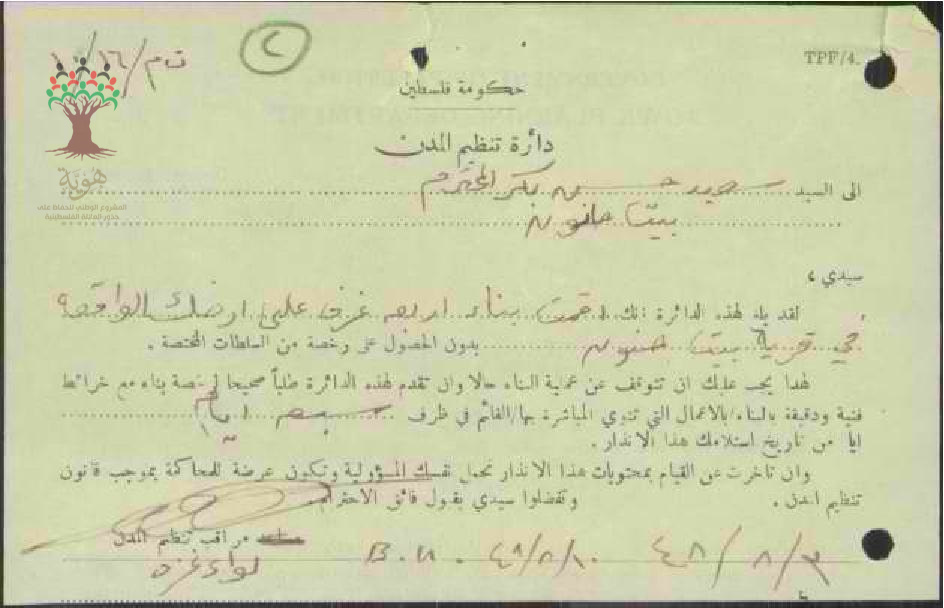 ت م /١٦/١
٢
TPF/4.
حكومة فلسطين
دائرة تنظيم المدن
هوية
المشروع الوطني للحفاظ على
جذور العائلة الفلسطينية
الى السيد سعيد حسن بكر المحترم
بيت حانون
سيدي ،
لقد بلغ لهذه الدائرة انك اقمت بناء اربعة غرف على ارضك الواقعة
في قرية بيت حنون بدون الحصول على رخصة من السلطات المختصة .
لهذا يجب عليك ان تتوقف عن عملية البناء حالا وان تقدم لهذه الدائرة طلباً صحيحا لرخصة بناء مع خرائط
فنية ودقيقة بالبناء/بالاعمال التي تنوي المباشرة بها/القائم في ظرف سبعة ايام
من تاريخ استلامك هذا الانذار .
وان تاخرت عن القيام بمحتويات هذا الانذار تحمل نفسك المسؤولية وتكون عرضة للمحاكمة بموجب قانون
تنظيم المدن . وتفضلوا سيدي بقبول فائق الاحترام
مراقب تنظيم المدن
لواء غزة
٤٨/٨/٣ ٤٨/٨/١٠